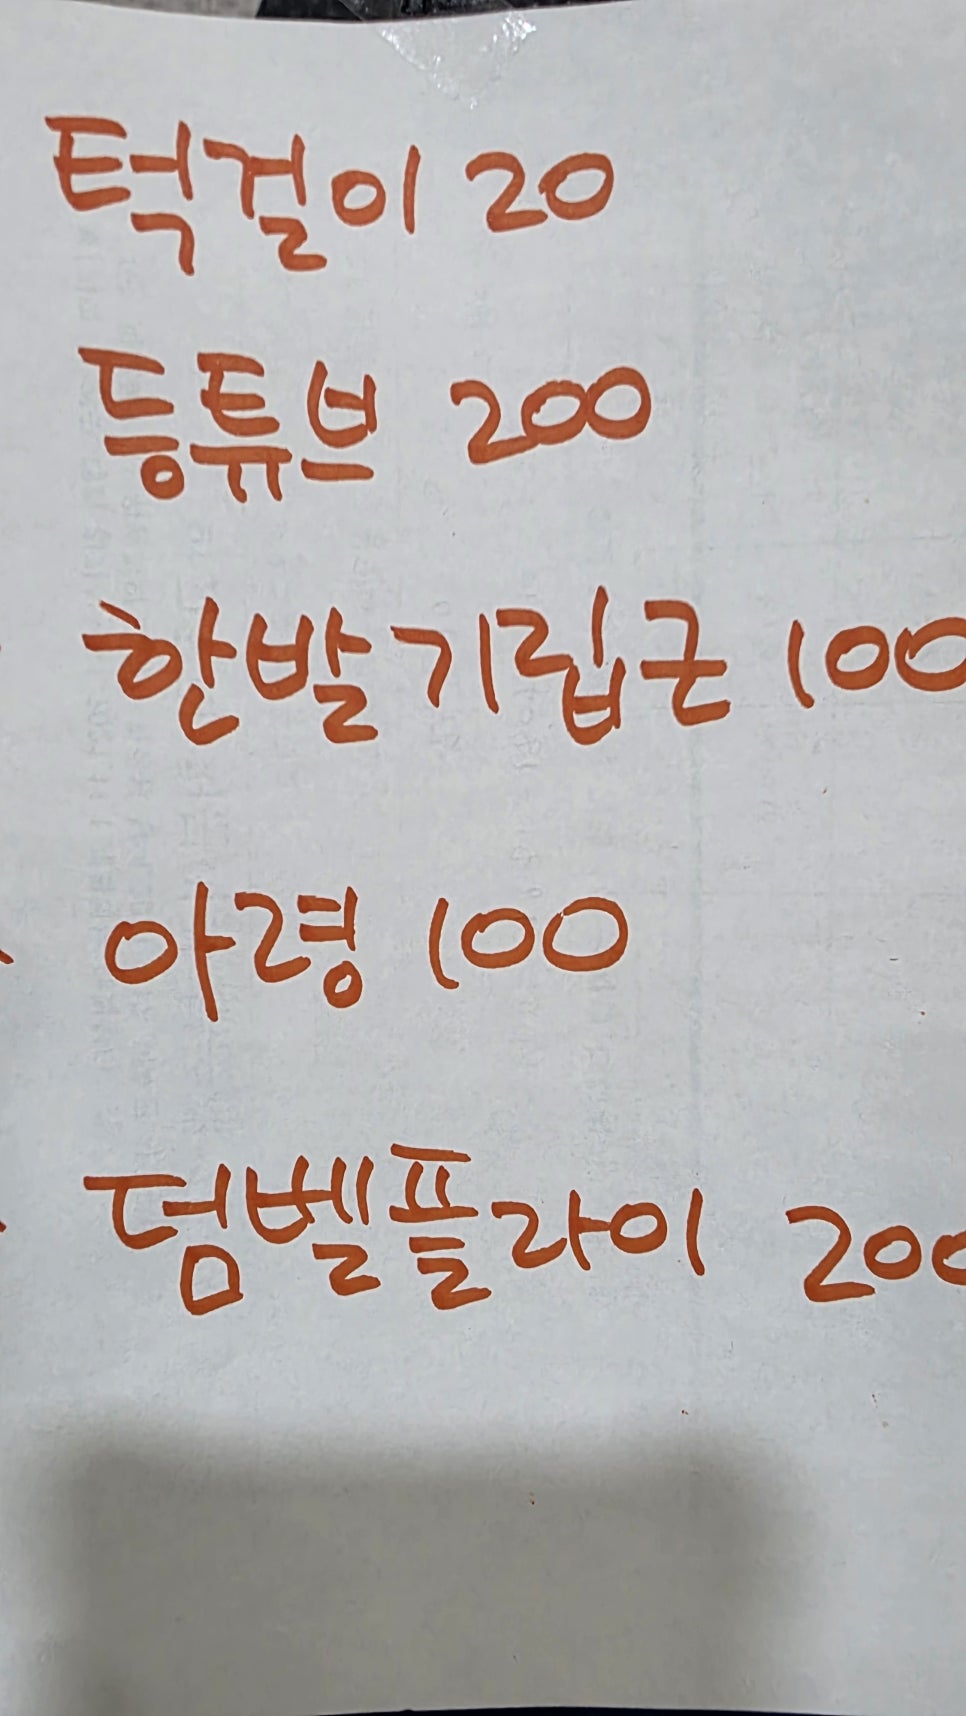 턱걸이 20
등튜브 200
한발기립근 100
아령 100
덤벨플라이 200